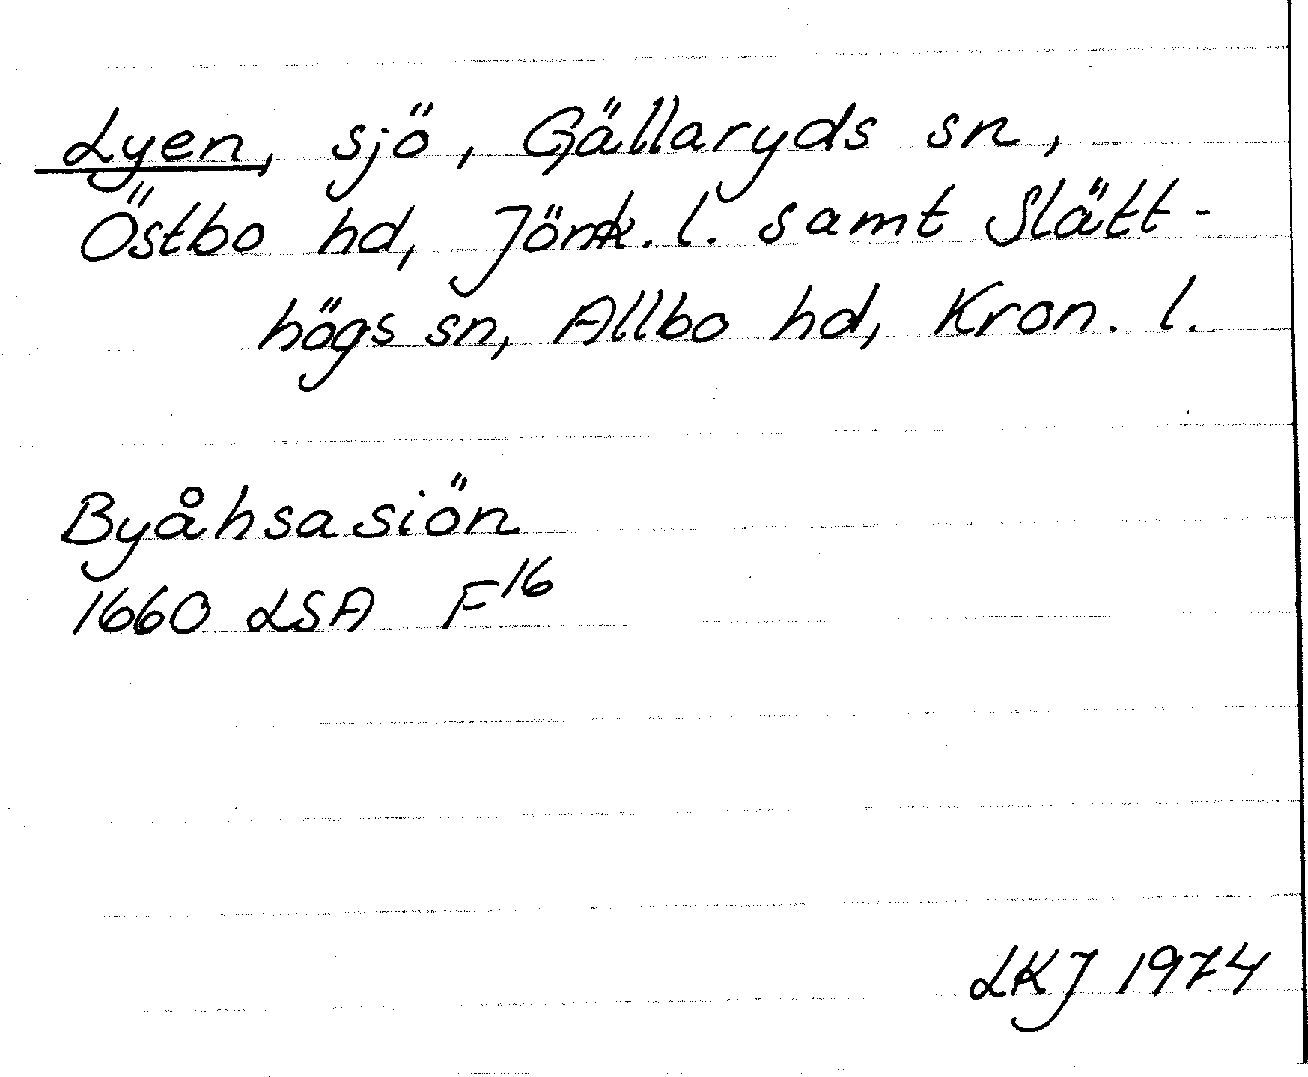 Lyen, sjö, Gällaryds sn,
Östbo hd, Jönk. l. samt Slätt-
högs sn, Allbo hd, Kron. l.
Byåhsasiön
1660 LSA F16
LKJ 1974